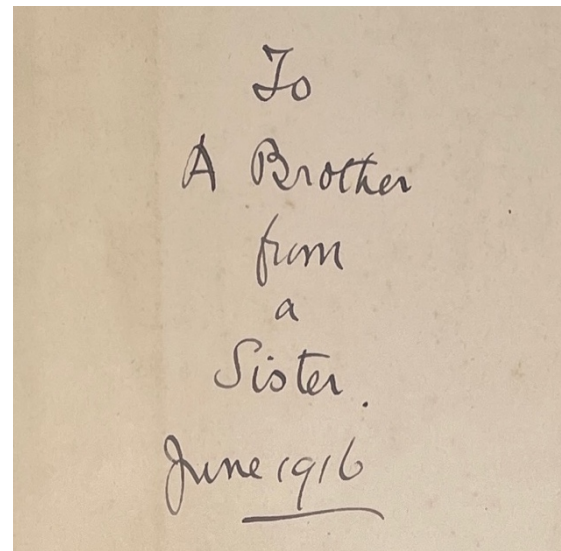 To
A Brother
from
a
Sister.
June 1916